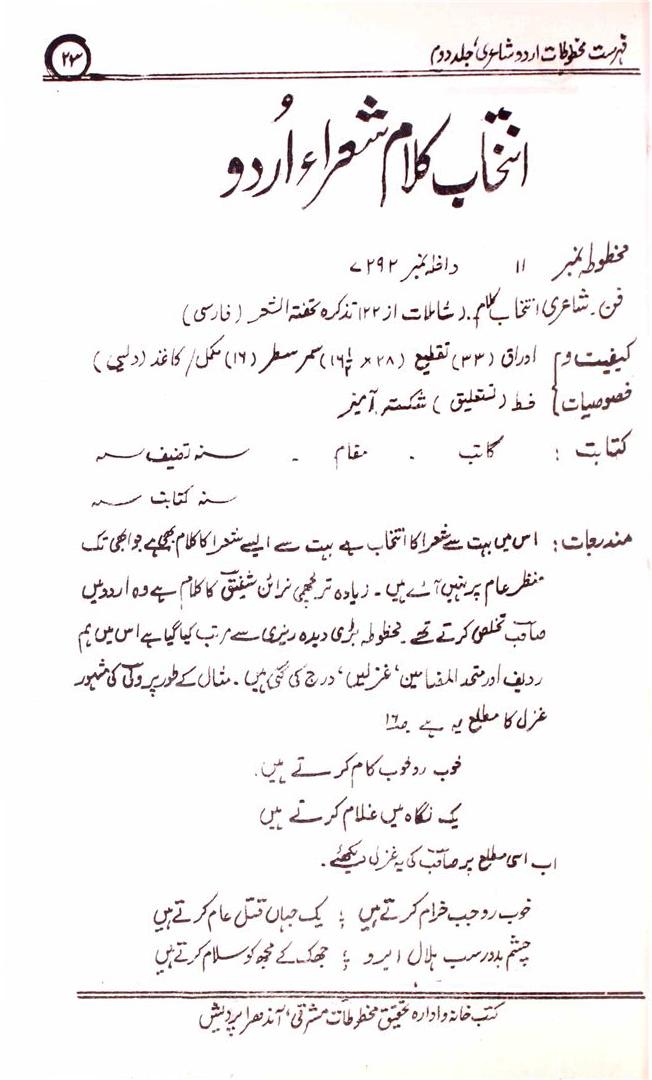 فہرست مخطوطات اردو شاعری، جلد دوم
۲۳
انتخاب کلام شعراء اُردو
مخطوطہ نمبر ۱۱ داخلہ نمبر ۷۲۹۲
فن۔ شاعری انتخاب کلام۔ (شاملات از ۲۲) تذکرہ تحفتہ الشعر (فارسی)
کیفیت و اوراق (۳۳) تقلیع (۲۸ × ۱۶½) سمر سطر (۱۶) مکمل / کاغذ (دلیی)
خصوصیات خط (نستعلیق) شکستہ آمیز
کتابت : کاتب ۔ مقام ۔ سنہ تصنیف ــــ
سنہ کتابت ــــ
مندرجات : اس میں بہت سے شعرا کا انتخاب ہے بہت سے ایسے شعرا کا کلام بھی ہے جو ابھی تک
منظر عام پر نہیں آئے ہیں۔ زیادہ تر لچھمی نرائن شفیق کا کلام ہے وہ اردو میں
صاحب تخلص کرتے تھے۔ مخطوطہ بڑی دیدہ ریزی سے مرتب کیا گیا ہے اس میں ہم
ردیف اور متحد المضامین، غزلیں، درج کی گئی ہیں۔ مثال کے طور پر ولی کی مشہور
غزل کا مطلع یہ ہے صـ۱۶
خوب رو خوب کام کرتے ہیں۔
یک نگاہ میں غلام کرتے ہیں
اب اسی مطلع پر صاحب کی یہ غزل دیکھئے۔
خوب رو جب خرام کرتے ہیں ؛ یک جہاں قتل عام کرتے ہیں
چشم بد دور سب ہلال ابرو ؛ جھک کے مجھ کو سلام کرتے ہیں
کتب خانہ و ادارہ تحقیق مخطوطات مشرقی، آندھرا پردیش